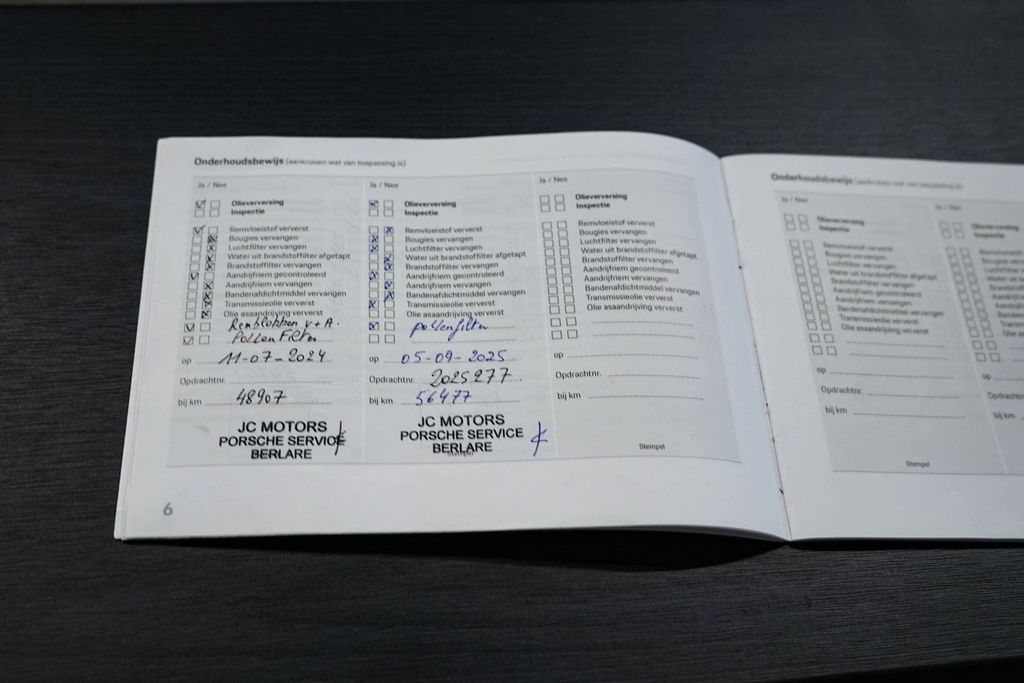 Onderhoudsbewijs (aankruisen wat van toepassing is)
Ja / Nee
Olieverversing
Inspectie
Remvloeistof ververst
Bougies vervangen
Luchtfilter vervangen
Water uit brandstoffilter afgetapt
Brandstoffilter vervangen
Aandrijfriem gecontroleerd
Aandrijfriem vervangen
Bandenafdichtmiddel vervangen
Transmissieolie ververst
Olie asaandrijving ververst
Remblokken v+A.
Pollen Filter
op 11-07-2024
Opdrachtnr.
bij km 48907
JC MOTORS
PORSCHE SERVICE
BERLARE
Ja / Nee
Olieverversing
Inspectie
Remvloeistof ververst
Bougies vervangen
Luchtfilter vervangen
Water uit brandstoffilter afgetapt
Brandstoffilter vervangen
Aandrijfriem gecontroleerd
Aandrijfriem vervangen
Bandenafdichtmiddel vervangen
Transmissieolie ververst
Olie asaandrijving ververst
pollenfilter
op 05-09-2025
Opdrachtnr. 2025277
bij km 56477
JC MOTORS
PORSCHE SERVICE
BERLARE
Stempel
Ja / Nee
Olieverversing
Inspectie
Remvloeistof ververst
Bougies vervangen
Luchtfilter vervangen
Water uit brandstoffilter afgetapt
Brandstoffilter vervangen
Aandrijfriem gecontroleerd
Aandrijfriem vervangen
Bandenafdichtmiddel vervangen
Transmissieolie ververst
Olie asaandrijving ververst
op
Opdrachtnr.
bij km
Stempel
6
Onderhoudsbewijs (aankruisen wat van toepassing is)
Ja / Nee
Olieverversing
Inspectie
Remvloeistof ververst
Bougies vervangen
Luchtfilter vervangen
Water uit brandstoffilter afgetapt
Brandstoffilter vervangen
Aandrijfriem gecontroleerd
Aandrijfriem vervangen
Bandenafdichtmiddel vervangen
Transmissieolie ververst
Olie asaandrijving ververst
op
Opdrachtnr.
bij km
Stempel
Ja / Nee
Olieverversing
Inspectie
op
Opdrachtnr.
bij km